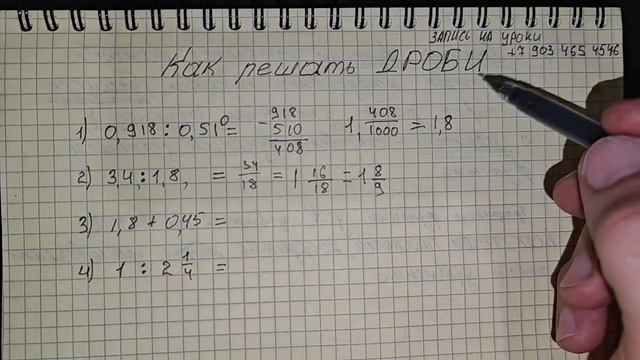 ЗАПИСЬ НА УРОКИ
+7 903 465 4546
Как решать ДРОБИ
1) 0,918 : 0,51⁰ = - 918 / 510 / 408   1, 408/1000 = 1,8
2) 3,4, : 1,8, = 34/18 = 1 16/18 = 1 8/9
3) 1,8 + 0,45 =
4) 1 : 2 1/4 =